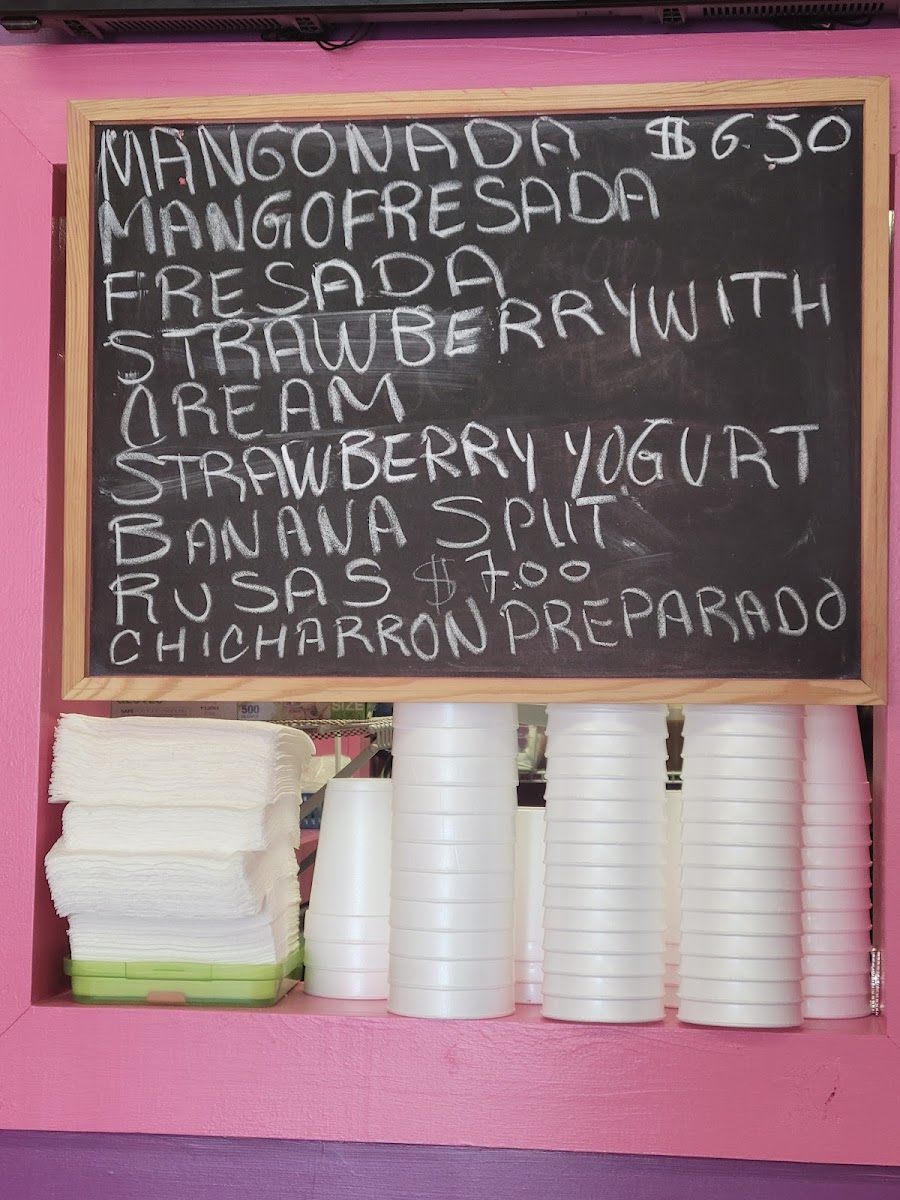 MANGONADA $6.50
MANGOFRESADA
FRESADA
STRAWBERRY WITH
CREAM
STRAWBERRY YOGURT
BANANA SPLIT
RUSAS $7.00
CHICHARRON PREPARADO
500
SIZE